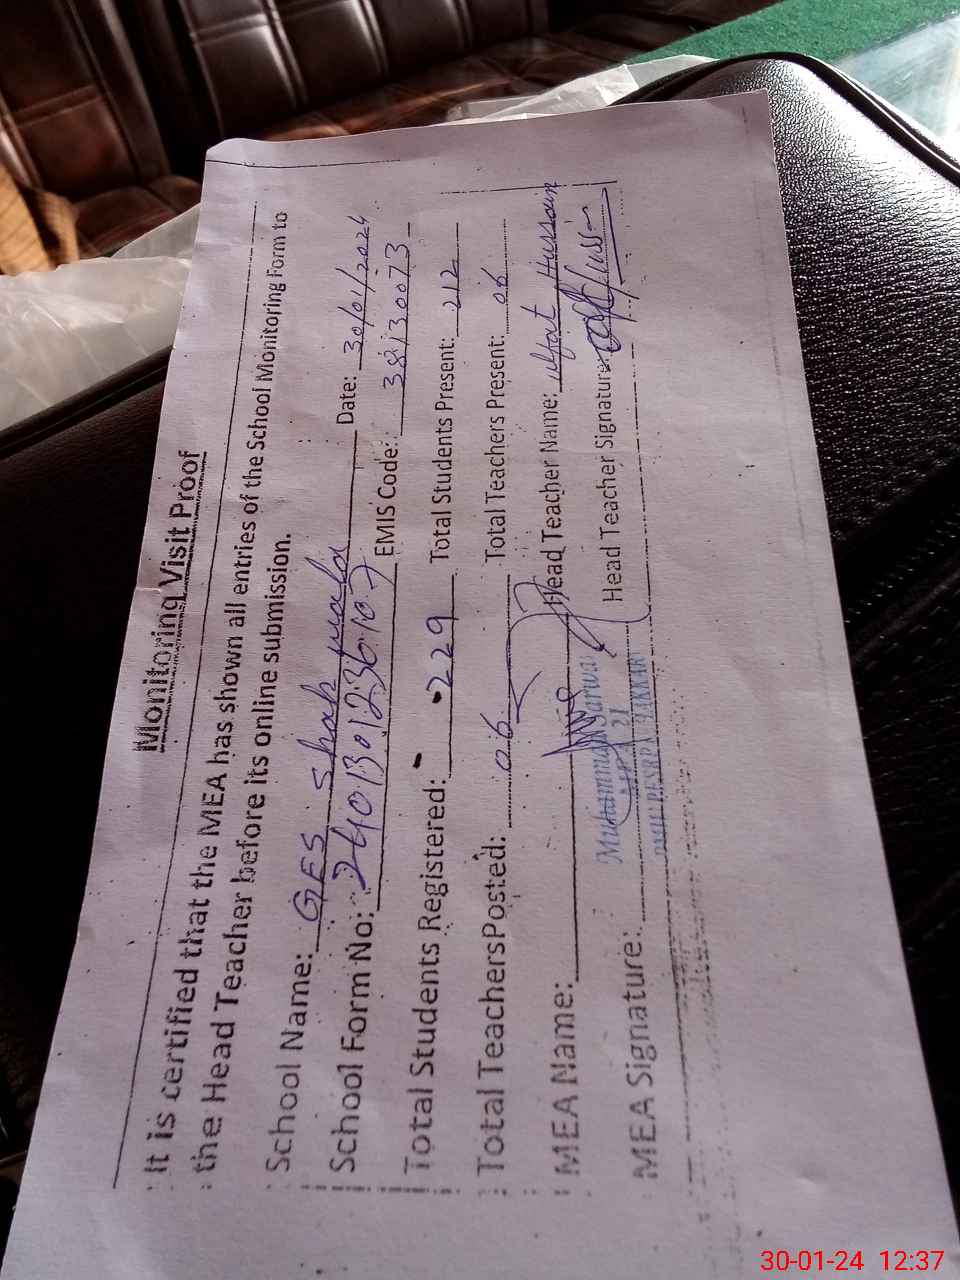 Monitoring Visit Proof
It is certified that the MEA has shown all entries of the School Monitoring Form to
the Head Teacher before its online submission.
School Name: GES Shah wala Date: 30/01/2024
School Form No: 2401301236107 EMIS Code: 38130073
Total Students Registered: 229 Total Students Present: 212
Total TeachersPosted: 06 Total Teachers Present: 06
MEA Name: Head Teacher Name: Ulfat Hussain
Muhammad Sarwar
MEA Signature: Head Teacher Signature:
30-01-24 12:37